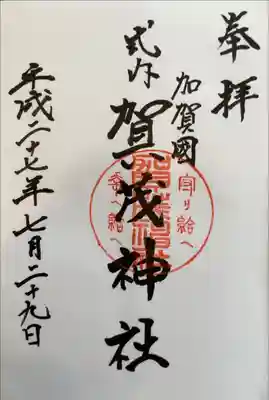 奉拝
加賀國
式内 賀茂神社
守り給へ
幸へ給へ
平成二十七年七月二十九日